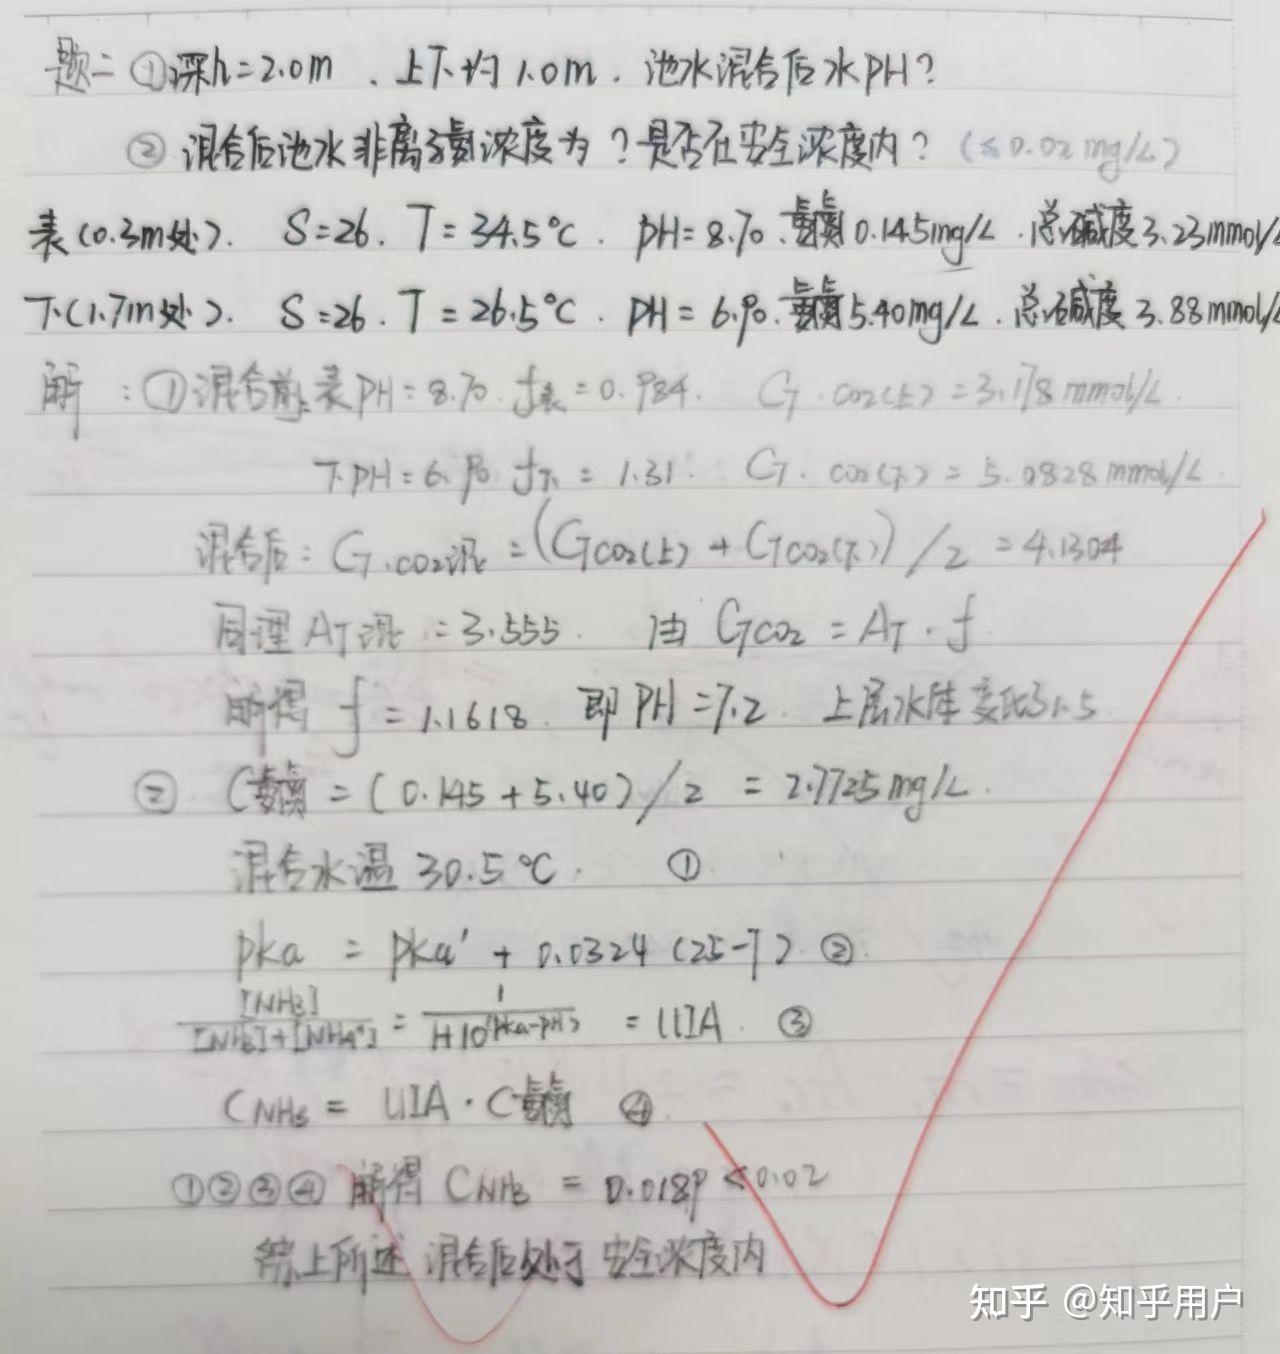 题二 ①深h=2.0m ,上下均1.0m.池水混合后水PH?
② 混合后池水非离子氨浓度为?是否在安全浓度内?(≤0.02mg/L)
表(0.3m处). S=26. T=34.5℃. PH=8.70.氨氮0.145mg/L.总碱度3.23mmol/L
下(1.7m处). S=26. T=26.5℃. PH=6.90.氨氮5.40mg/L.总碱度3.88mmol/L
解:①混合前:表PH=8.70. f表=0.984. CT.CO2(上)=3.178mmol/L.
下PH=6.90 f下=1.31. CT.CO2(下)=5.0828mmol/L.
混合后:CT.CO2混=(CTCO2(上)+CTCO2(下))/2=4.1304
同理AT混=3.555. 由CTCO2=AT·f
解得 f=1.1618. 即PH=7.2. 上层水体变低1.5
② C氨氮=(0.145+5.40)/2=2.7725mg/L.
混合水温30.5℃. ①
pka=pka'+0.0324(25-T) ②.
[NH3]/[NH3]+[NH4+]=1/1+10(pka-pH)=UIA. ③
CNH3=UIA·C氨氮 ④
①②③④解得CNH3=0.0189<0.02
综上所述 混合后处于安全浓度内
知乎 @知乎用户